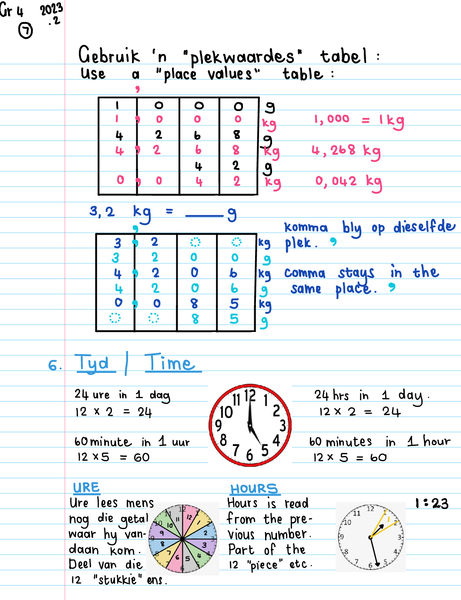 Gr 4 2023
.2
7
Gebruik 'n "plekwaardes" tabel :
Use a "place values" table :
,
1 0 0 0 g
1 , 0 0 0 kg 1,000 = 1kg
4 2 6 8 g
4 , 2 6 8 kg 4,268 kg
4 2 g
0 , 0 4 2 kg 0,042 kg
3,2 kg = ____ g
komma bly op dieselfde
plek. ,
comma stays in the
same place. ,
,
3 , 2 0 0 kg
3 2 0 0 g
4 , 2 0 6 kg
4 2 0 6 g
0 , 0 8 5 kg
0 0 8 5 g
6. Tyd / Time
24 ure in 1 dag
12 × 2 = 24
60 minute in 1 uur
12 × 5 = 60
12 1 2 3 4 5 6 7 8 9 10 11
24 hrs in 1 day.
12 × 2 = 24
60 minutes in 1 hour
12 × 5 = 60
URE
Ure lees mens
nog die getal
waar hy van-
daan kom.
Deel van die
12 "stukkie" ens.
12 1 2 3 4 5 6 7 8 9 10 11
HOURS
Hours is read
from the pre-
vious number.
Part of the
12 "piece" etc.
12 1 2 3 4 5 6 7 8 9 10 11
1:23